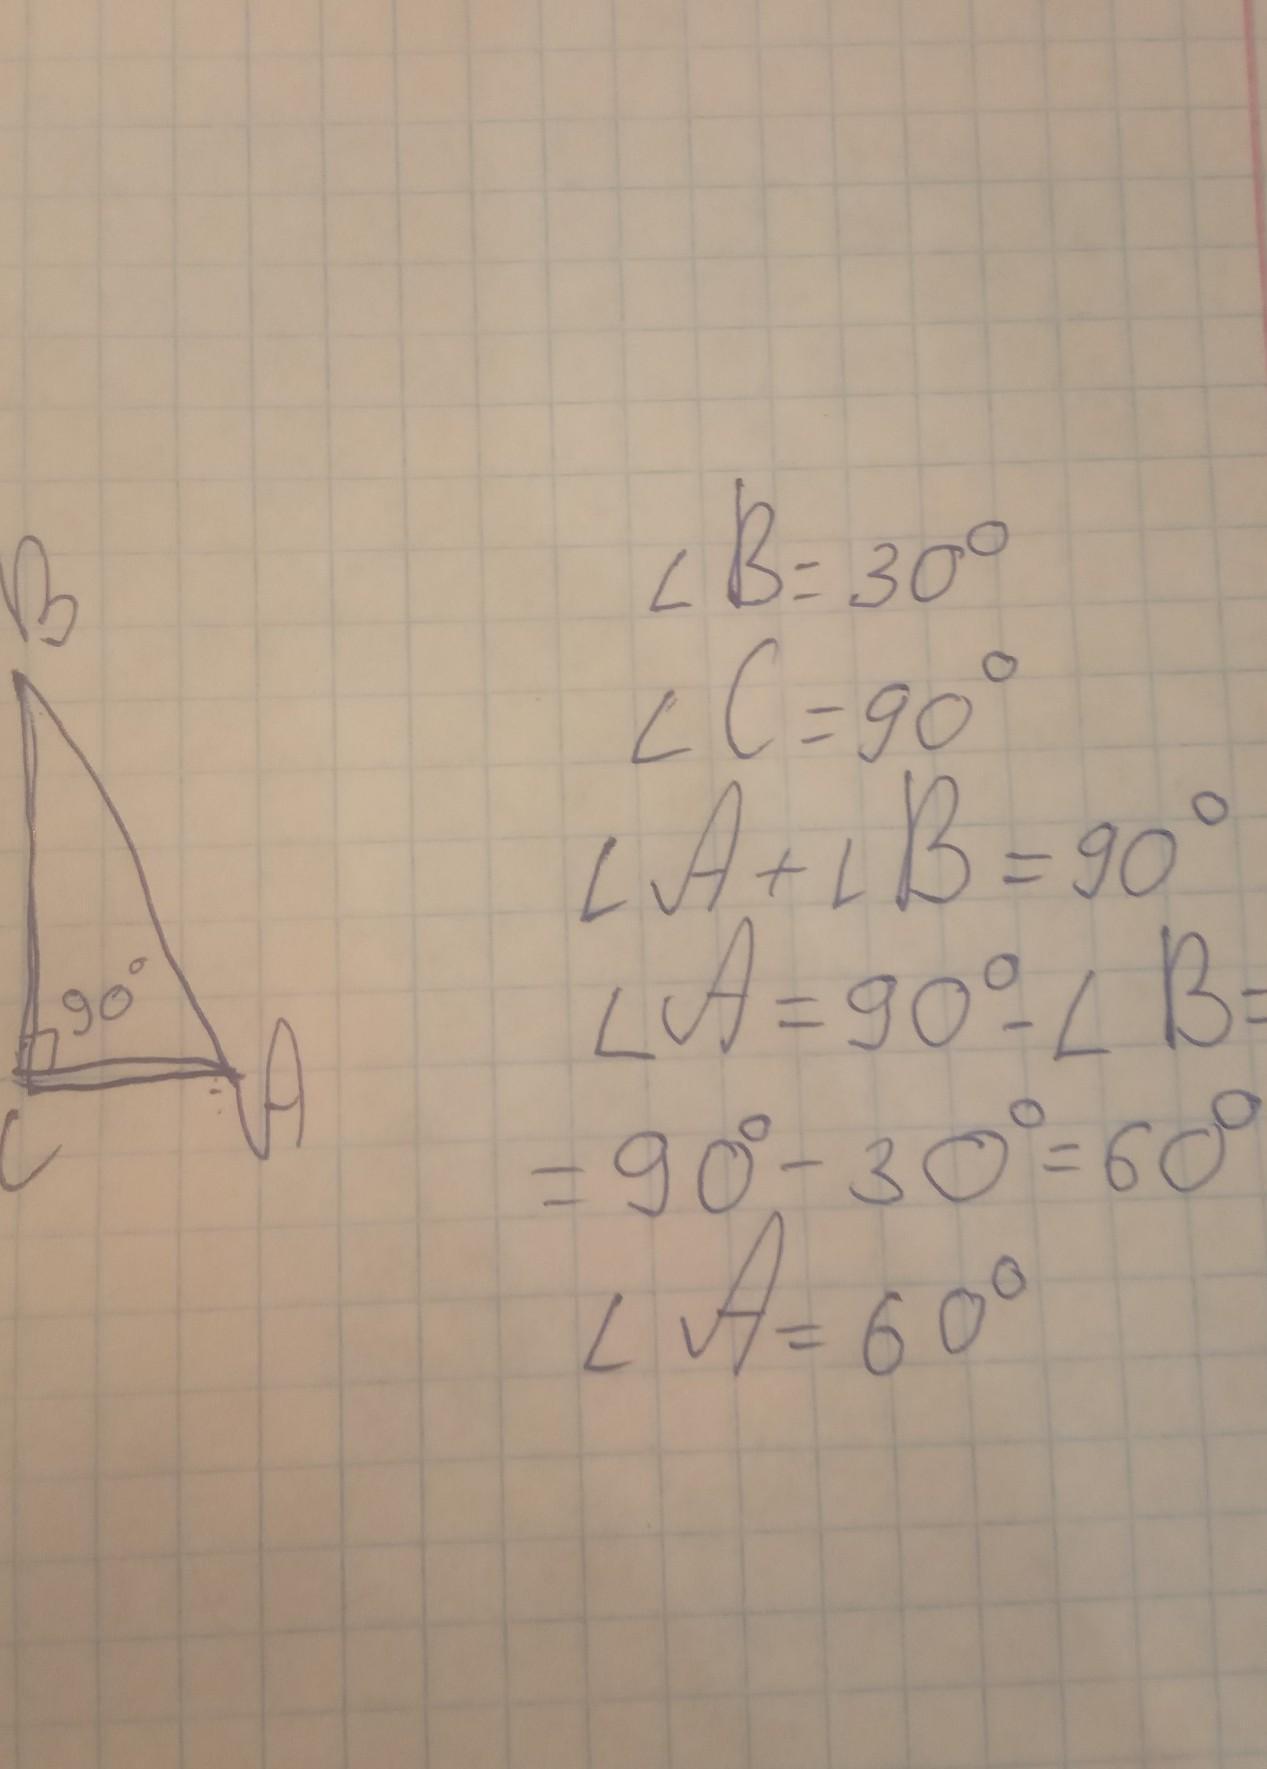 B
90°
C
A
∠B = 30°
∠C = 90°
∠A + ∠B = 90°
∠A = 90° - ∠B =
= 90° - 30° = 60°
∠A = 60°